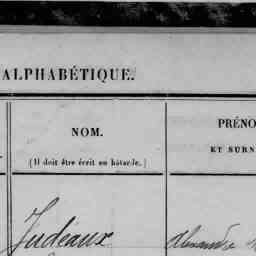 ALPHABÉTIQUE.
NOM.
(Il doit être écrit en bâtarde.)
PRÉNO
ET SURN
Judeaux
Alexandre